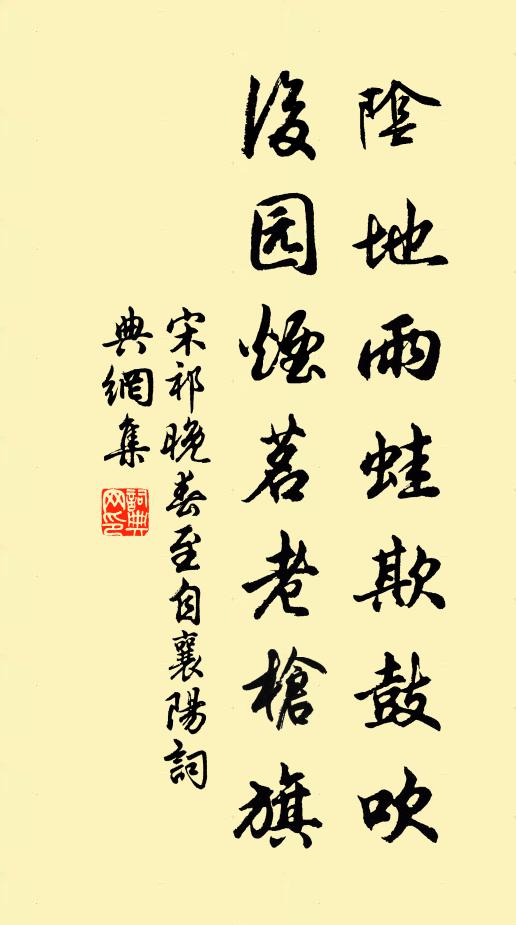 陰地雨蛙欺鼓吹
後园煙茗老槍旗
宋祁晚春至自襄陽詞
典網集
詞典
网印